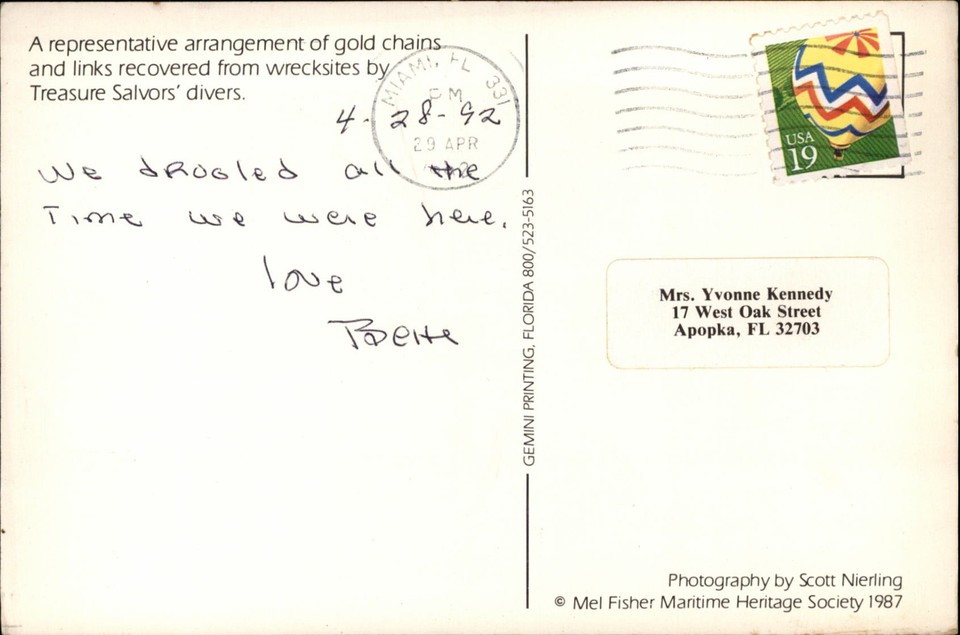 A representative arrangement of gold chains
and links recovered from wrecksites by
Treasure Salvors' divers.
MIAMI, FL 331
PM
29 APR
4-28-92
We drooled all the
Time we were here.
love
USA
19
GEMINI PRINTING, FLORIDA 800/523-5163
Mrs. Yvonne Kennedy
17 West Oak Street
Apopka, FL 32703
Photography by Scott Nierling
© Mel Fisher Maritime Heritage Society 1987